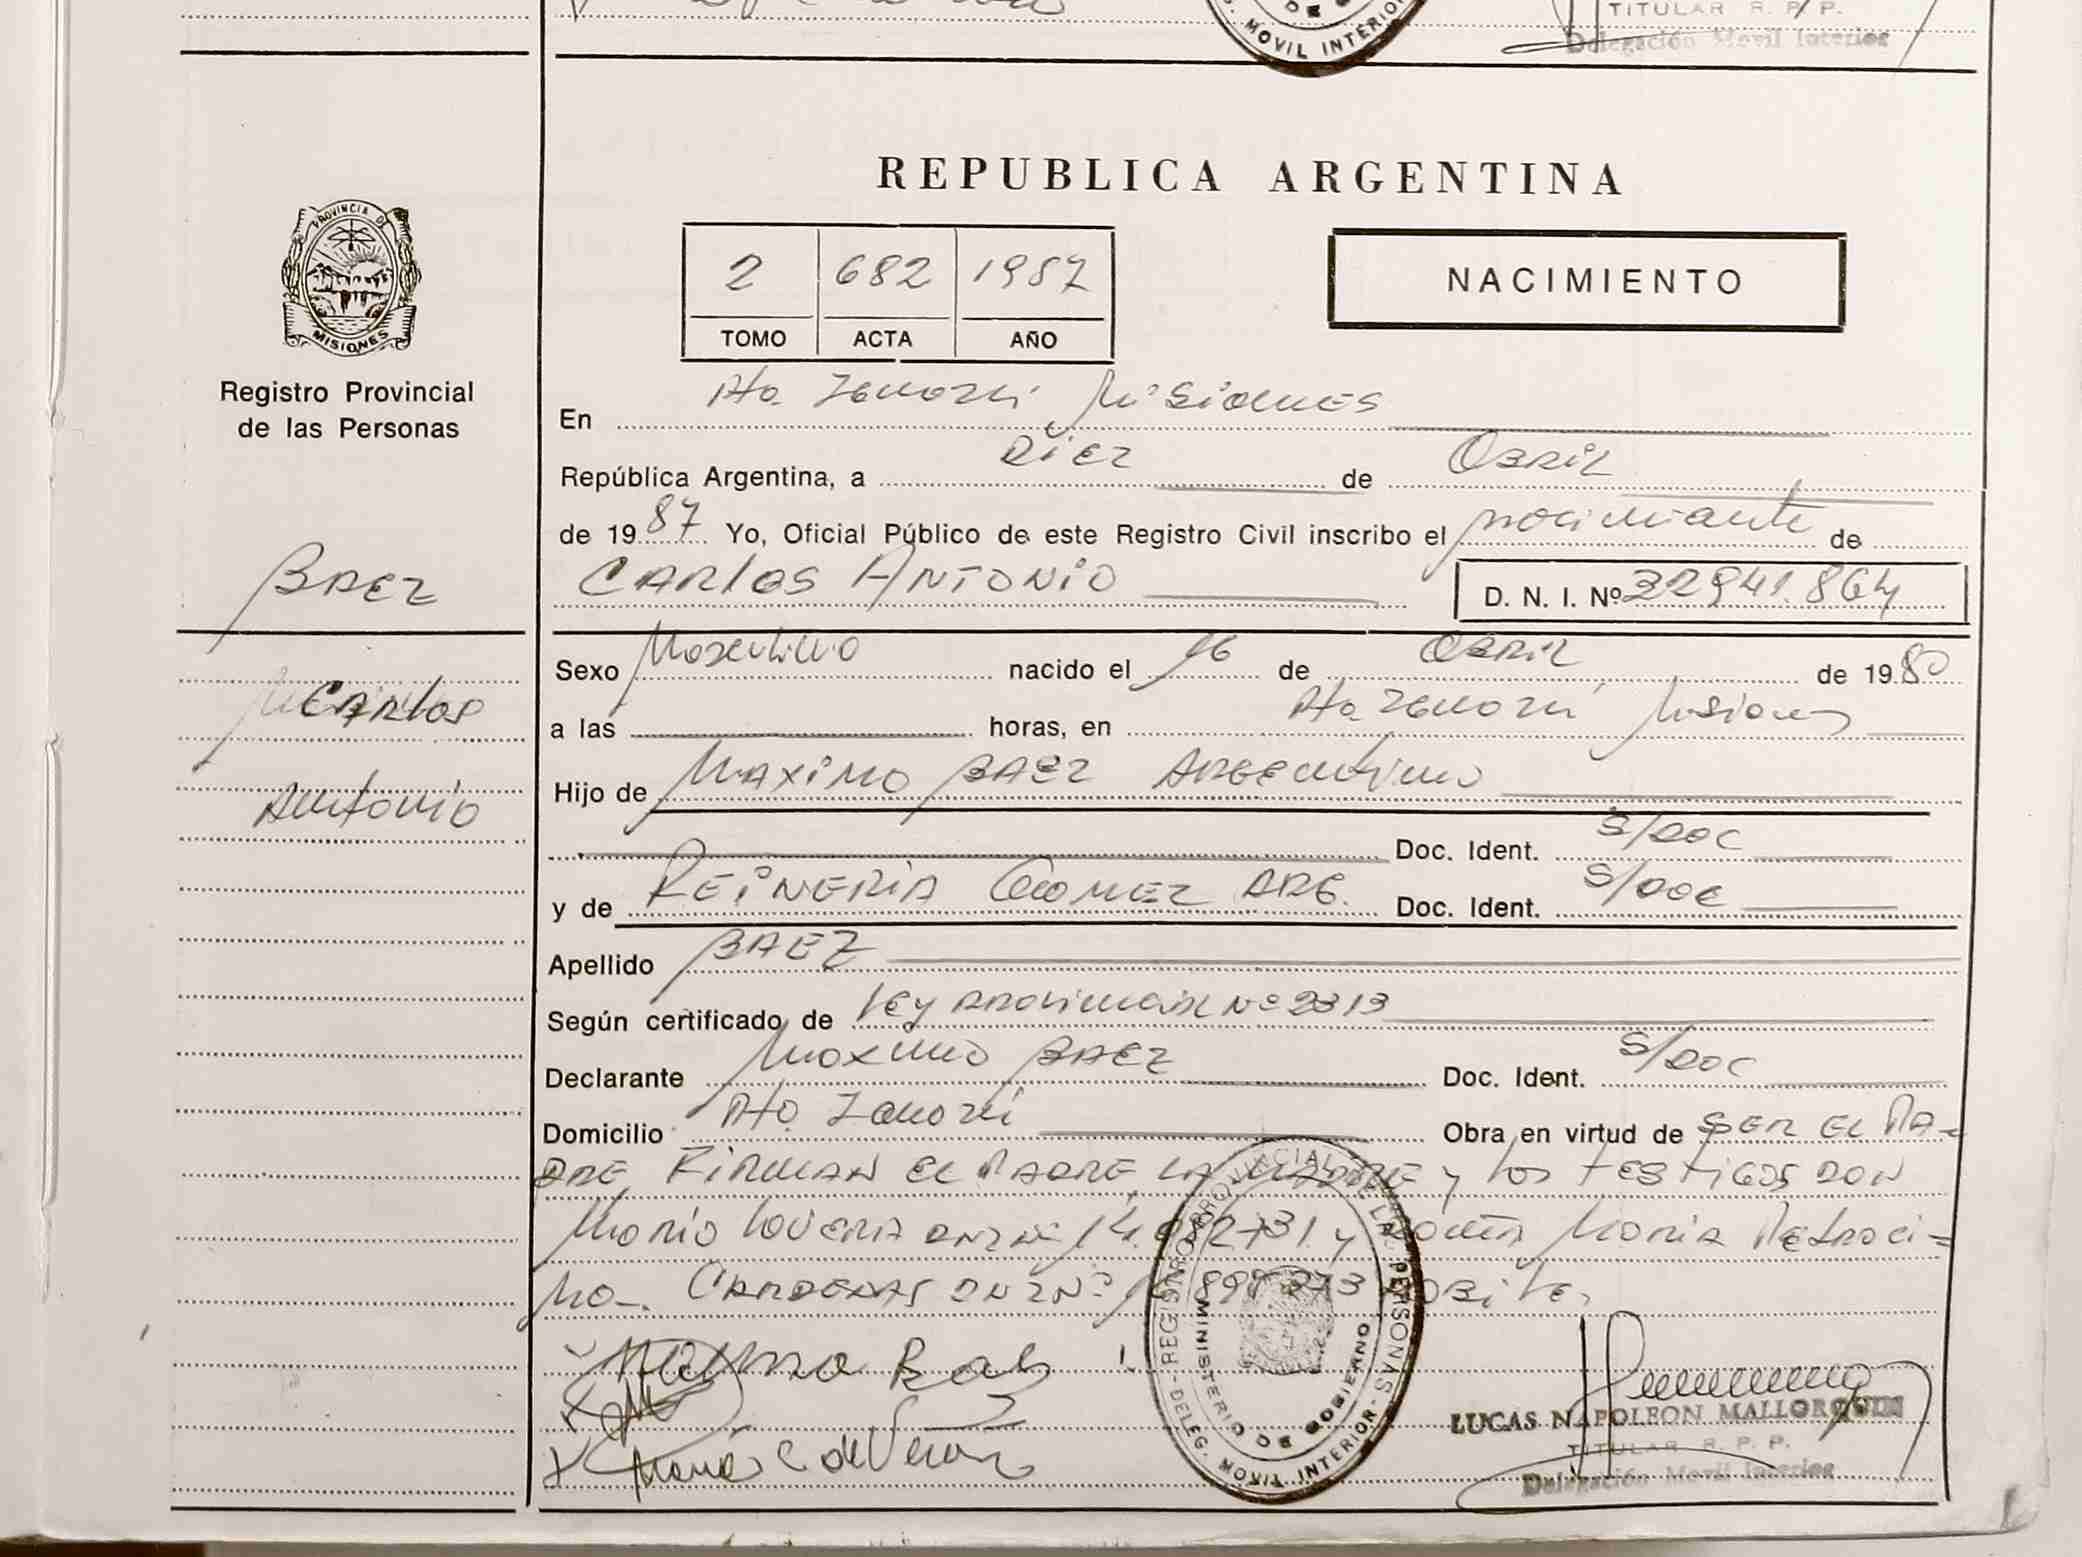 MOVIL INTERIOR
TITULAR R. P. P.
Delegación Movil Interior
REPUBLICA ARGENTINA
PROVINCIA DE
MISIONES
Registro Provincial
de las Personas
2 682 1987
TOMO ACTA AÑO
NACIMIENTO
En Pto. Misiones
República Argentina, a Diez de Abril
de 1987 Yo, Oficial Público de este Registro Civil inscribo el nacimiento de
BAEZ
CARLOS ANTONIO D. N. I. Nº 32941.864
Sexo Masculino nacido el 16 de Abril de 1980
Carlos
a las horas, en Pto. Misiones
Antonio
Hijo de MAXIMO BAEZ Argentino
Doc. Ident. S/DOC
y de REINERIA GOMEZ ARG. Doc. Ident. S/DOC
Apellido BAEZ
Según certificado de Ley Provincial Nº 2313
Declarante Maximo BAEZ Doc. Ident. S/DOC
Domicilio Pto. Obra en virtud de SER EL PA-
DRE, FIRMAN EL PADRE, LA MADRE y los TESTIGOS DON
Mario DNI Nº 14. 731. y Doña Maria Patroci-
no-. CARDENAS DNI Nº
REGISTRO PROVINCIAL DE LAS PERSONAS - DELEG. MOVIL INTERIOR -
MINISTERIO DE GOBIERNO
Maria C de Vera
LUCAS NAPOLEON MALLORQUIN
TITULAR R. P. P.
Delegación Movil Interior